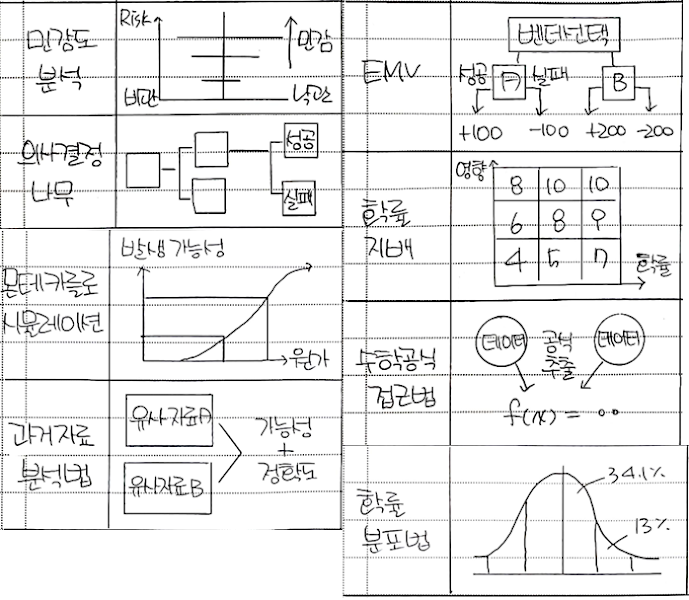 민감도
분석
Risk
민감
비관
낙관
의사결정
나무
성공
실패
몬테카를로
시뮬레이션
발생가능성
원가
과거자료
분석법
유사자료A
유사자료B
가능성
+
정확도
EMV
벤더선택
성공
A
실패
B
+100
-100
+200
-200
확률
지배
영향
8 10 10
6 8 9
4 5 7
확률
수학공식
접근법
데이터
공식
추출
데이터
f(x) = ..
확률
분포법
34.1%
13%